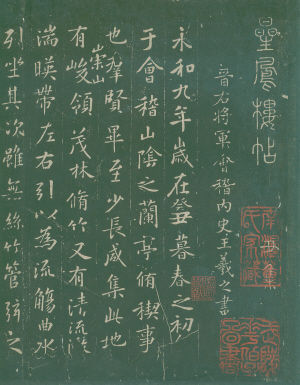 星鳳樓帖
晉右將軍會稽內史王羲之書
永和九年歲在癸丑暮春之初
于會稽山陰之蘭亭脩稧事
也羣賢畢至少長咸集此地
有崇山峻領茂林脩竹又有清流激
湍暎帶左右引以為流觴曲水
列坐其次雖無絲竹管弦之